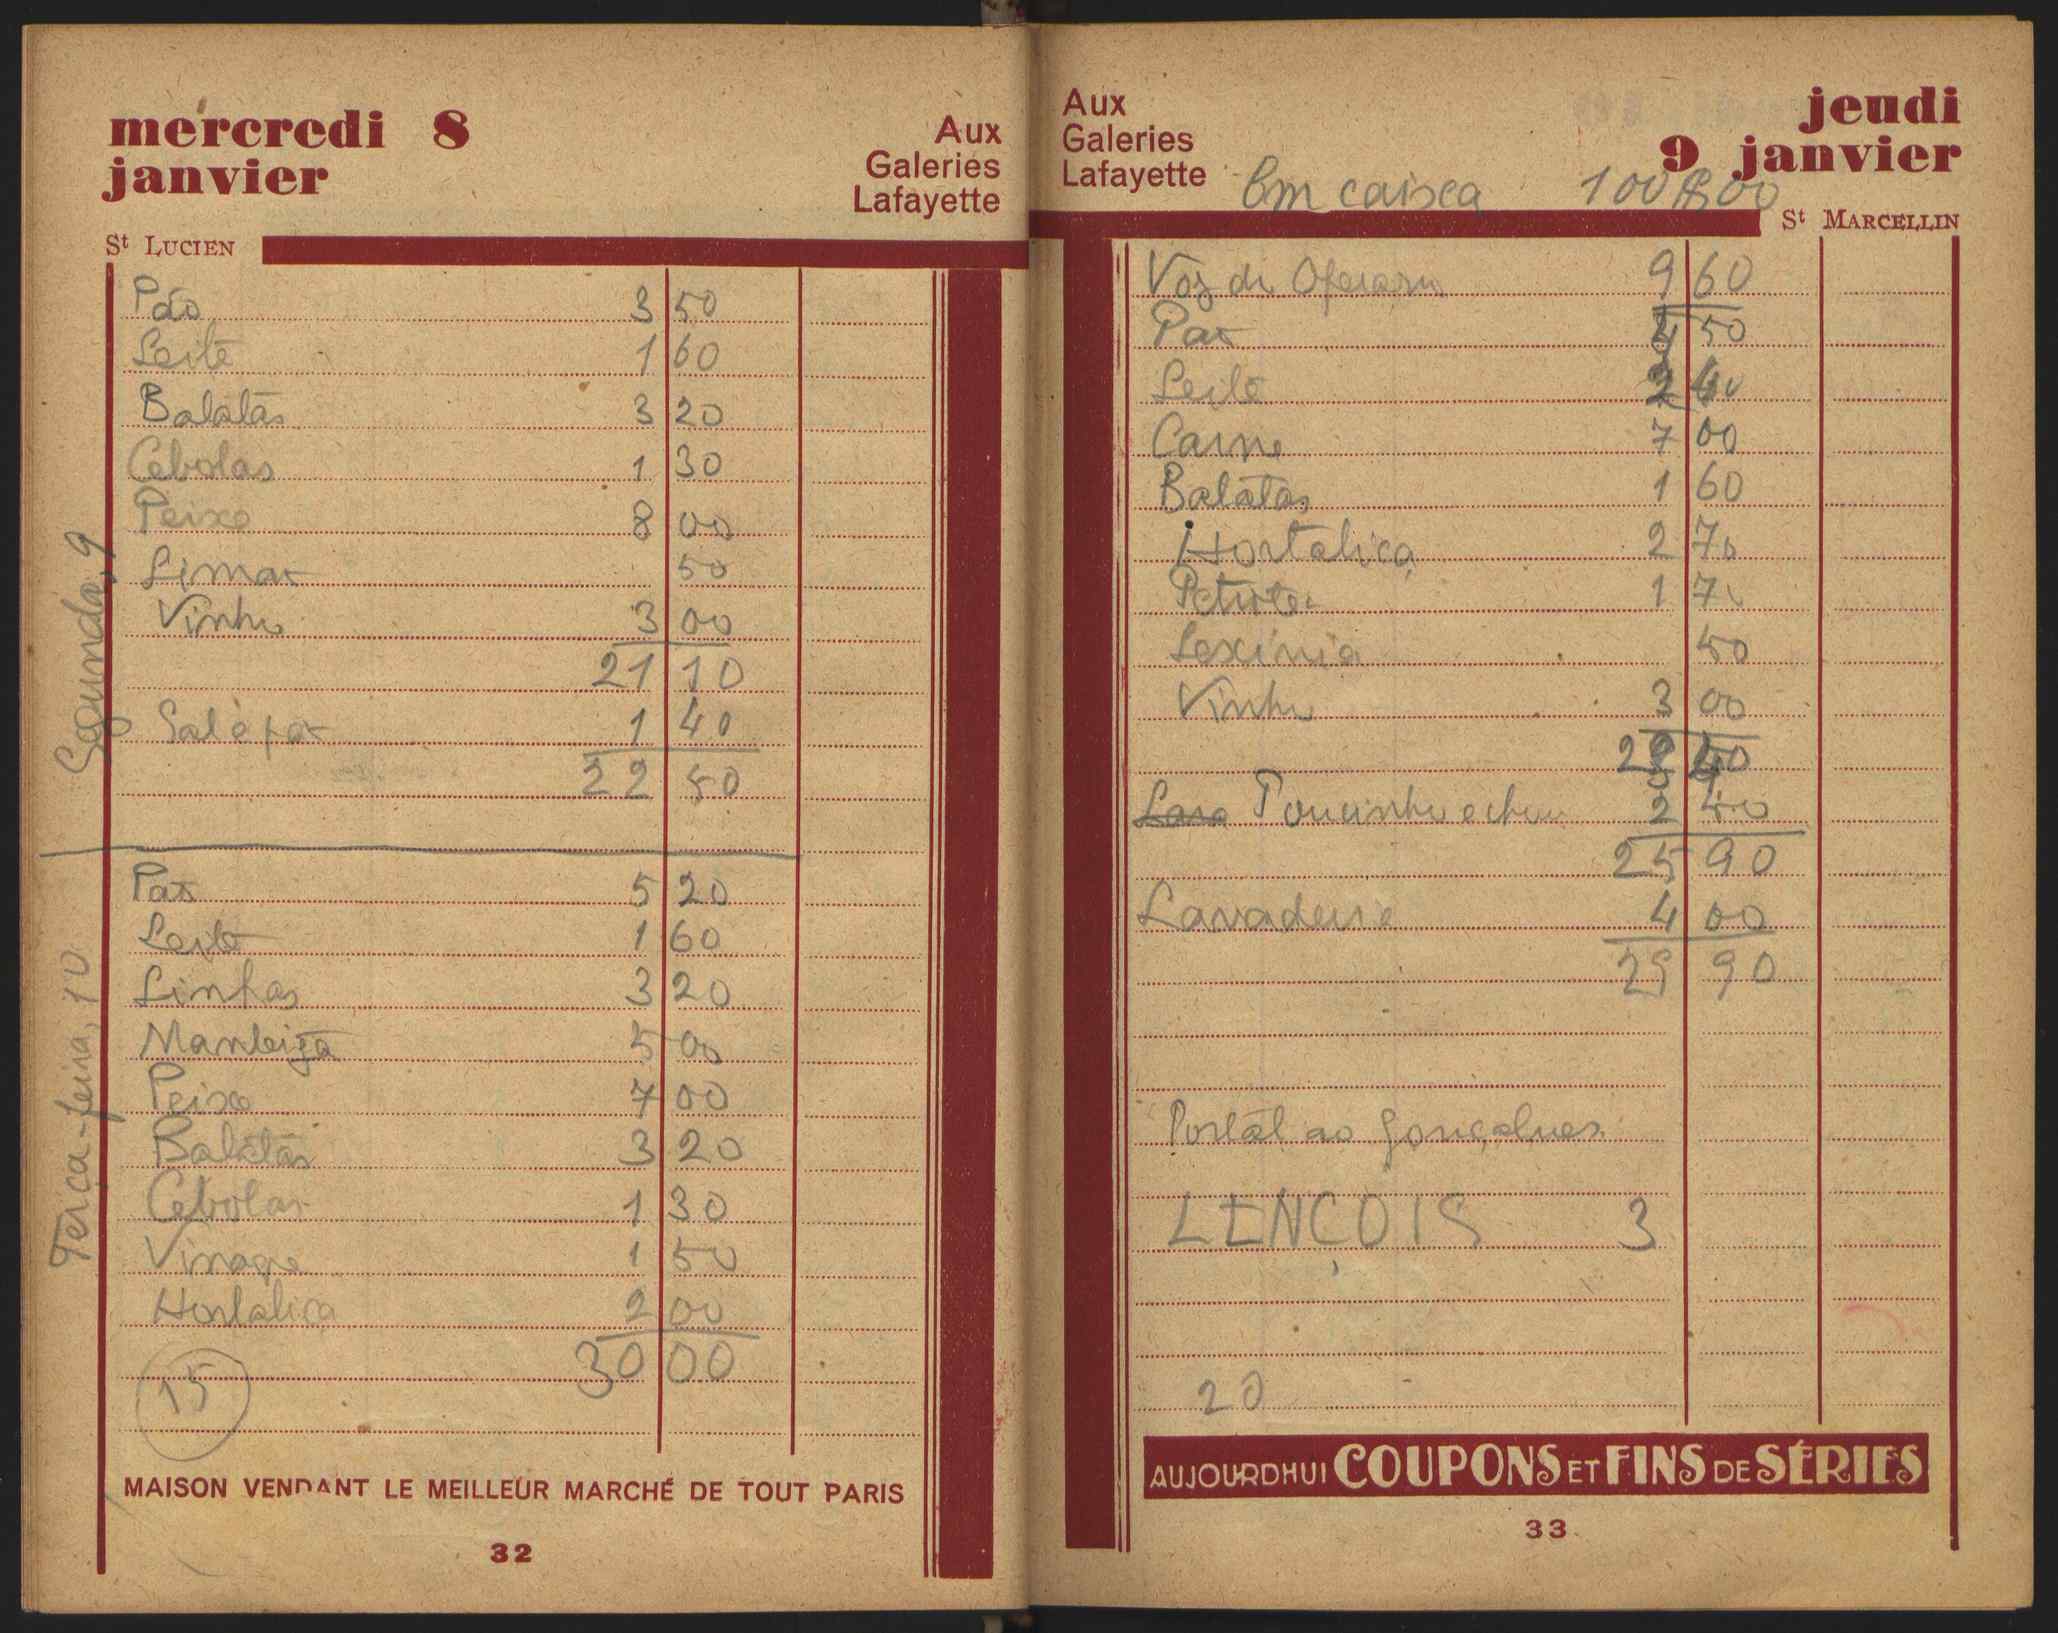 mercredi 8
janvier
Aux
Galeries
Lafayette
St LUCIEN
Segunda, 9
Pão 3 50
Leite 1 60
Batatas 3 20
Cebolas 1 30
Peixe 8 00
Limão 50
Vinho 3 00
21 10
Sal e 1 40
22 50
Terça-feira, 10
Pão 5 20
Leite 1 60
Linhas 3 20
Manteiga 5 00
Peixe 7 00
Batatas 3 20
Cebolas 1 30
Vinagre 1 50
Hortaliça 2 00
30 00
15
MAISON VENDANT LE MEILLEUR MARCHÉ DE TOUT PARIS
32
Aux
Galeries
Lafayette
jeudi
9 janvier
Em caixa 100$00
St MARCELLIN
Voz do Operario 9 60
Pão 50
Leite
Carne 7 00
Batatas 1 60
Hortaliça 2 70
Petroleo 1 70
Lexivia 50
Vinho 3 00
Toucinho e 2 40
25 90
Lavadeira 4 00
29 90
Postal ao Gonçalves
LENÇOIS 3
20
AUJOURDHUI COUPONS ET FINS DE SÉRIES
33